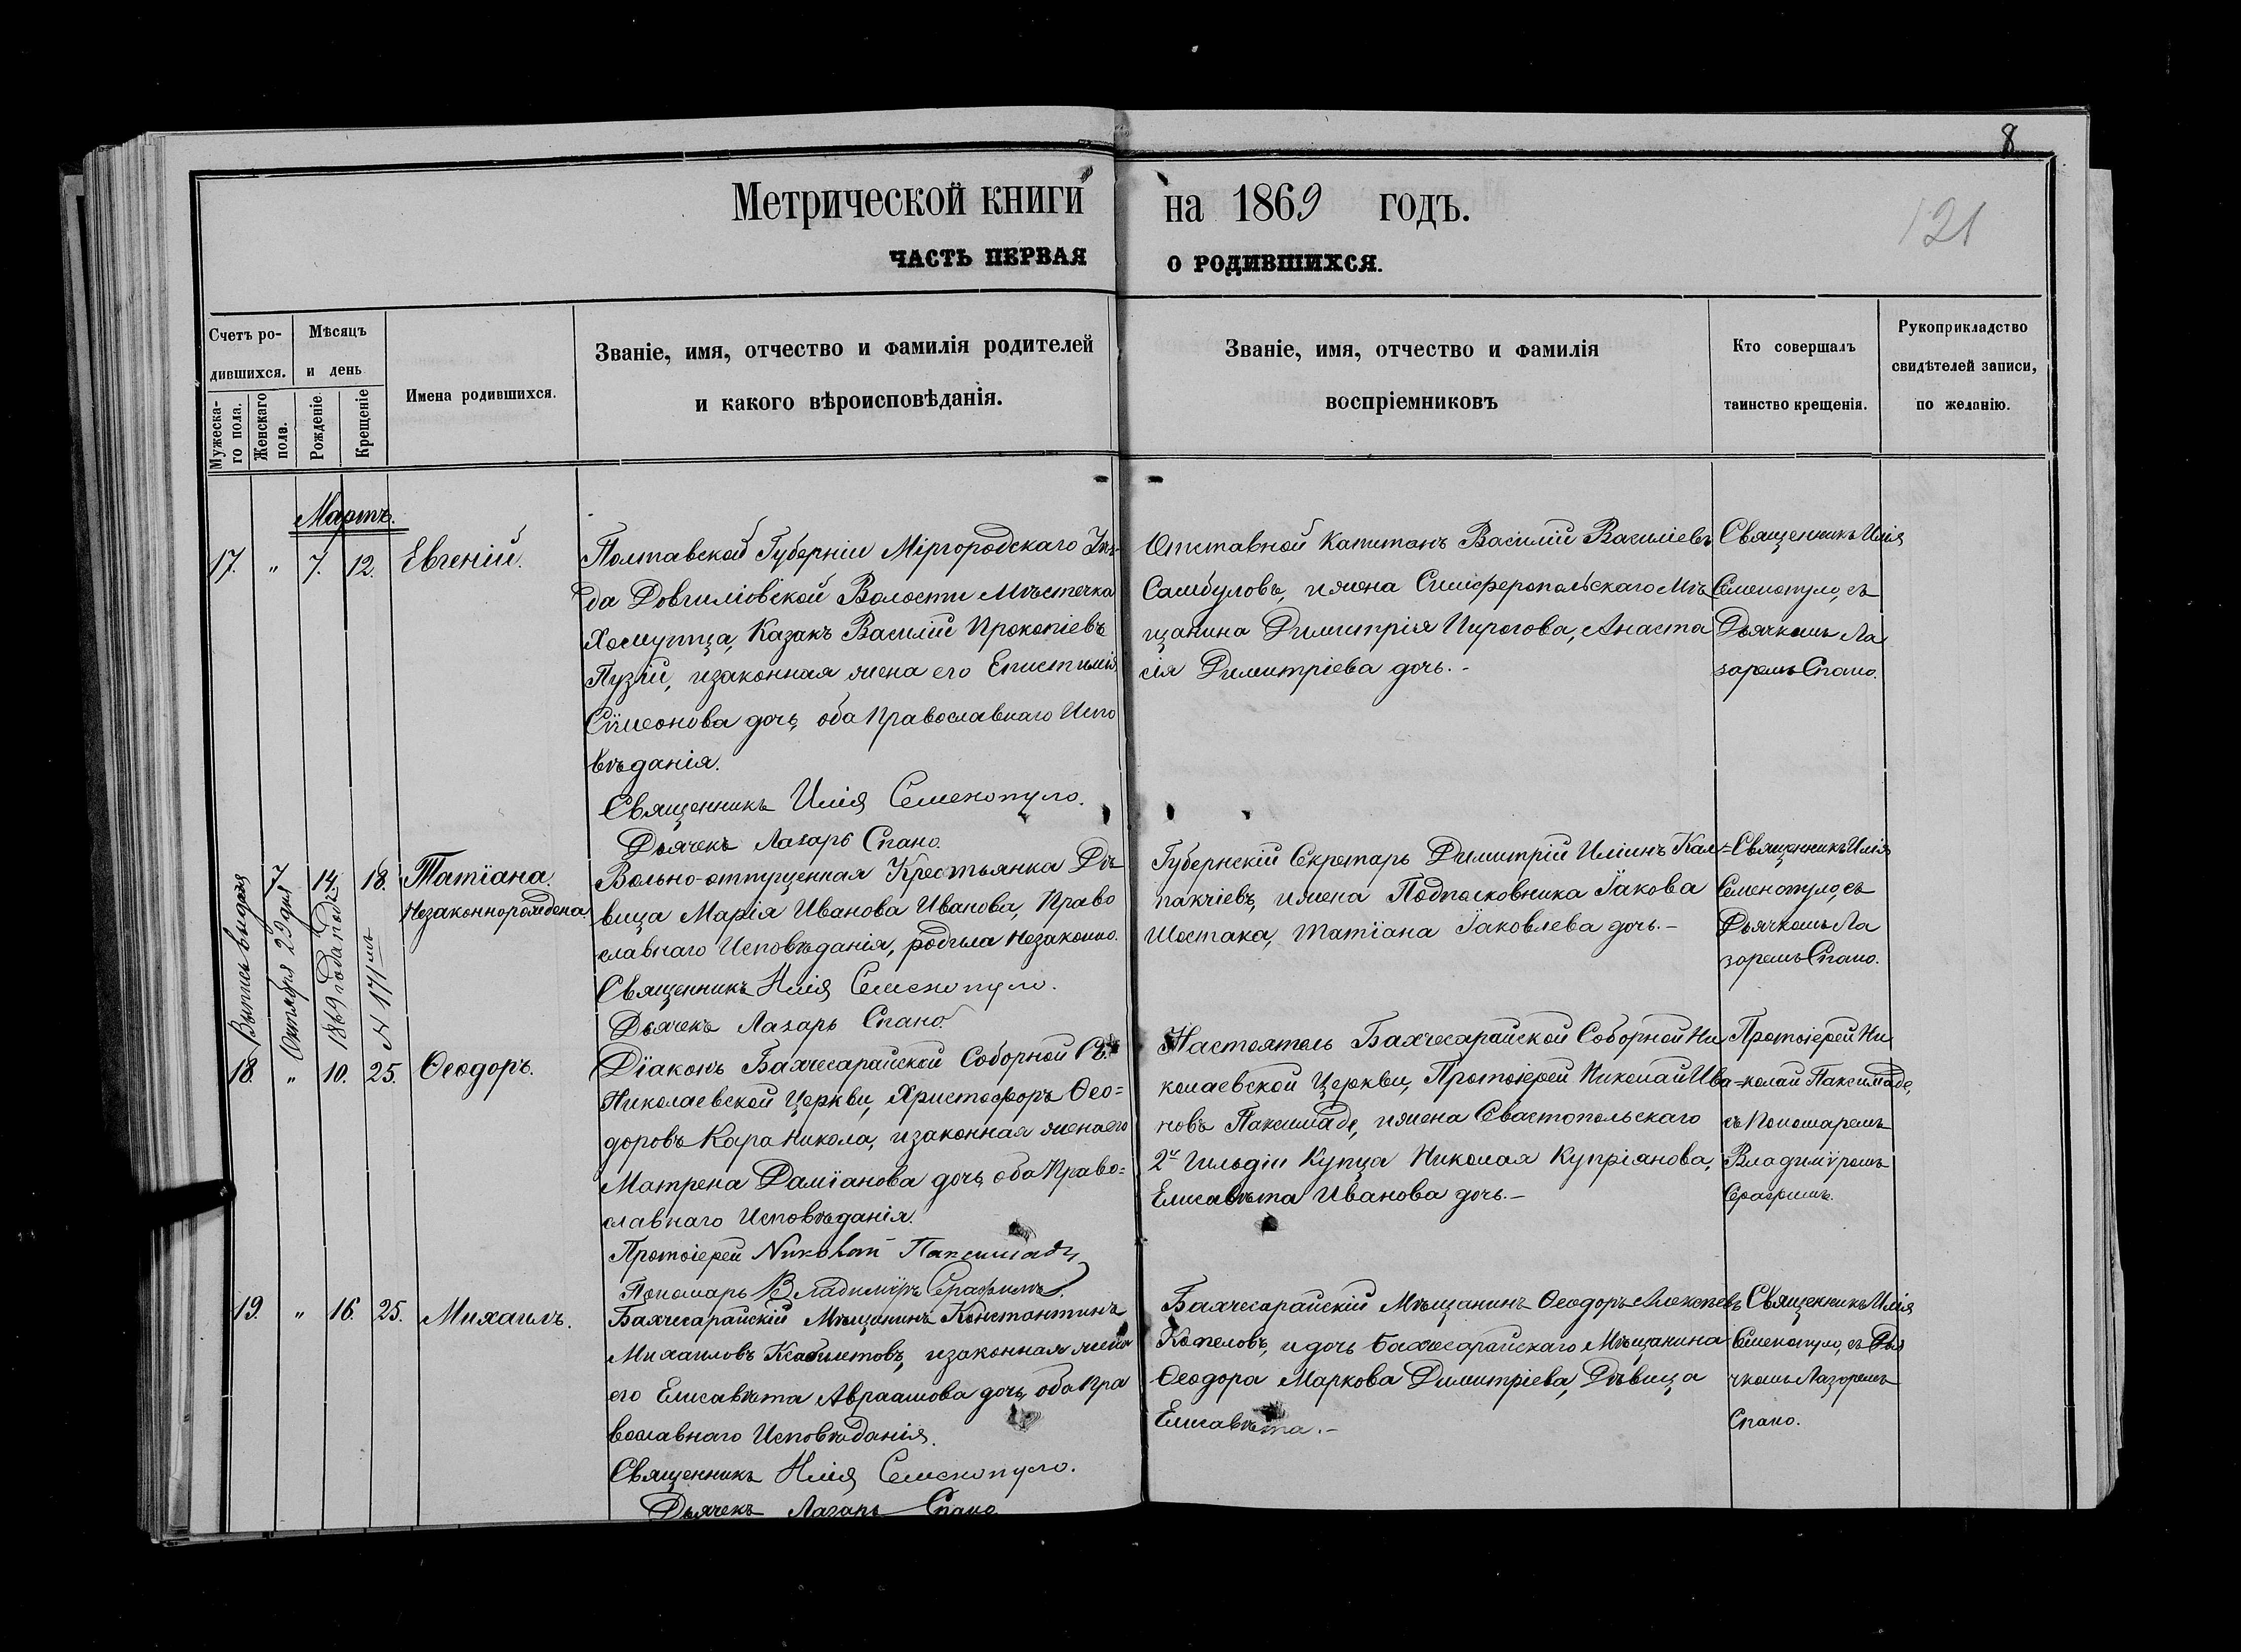 8
Метрической книги на 1869 годъ.
121
ЧАСТЬ ПЕРВАЯ О РОДИВШИХСЯ.
Счетъ ро-
дившихся.
Мужеска-
го пола.
Женскаго
пола.
Мѣсяцъ
и день
Рожденіе.
Крещеніе
Имена родившихся.
Званіе, имя, отчество и фамилія родителей
и какого вѣроисповѣданія.
Званіе, имя, отчество и фамилія
воспріемниковъ
Кто совершалъ
таинство крещенія.
Рукоприкладство
свидѣтелей записи,
по желанію.
Мартъ.
17. " 7. 12. Евгеній.
Полтавской Губерніи Міргородскаго Уѣз-
да Волости Мѣстечка
Хомутца, Казакъ Василій Прокопіевъ
Пузій, изаконная жена его Епистимія
Сѵмеонова дочь, оба Православнаго Испо
вѣданія.
Священникъ Илія Семенопуло.
Дьячекъ Лазарь Спано.
Отставной Капитанъ Василій Василіевъ
Самбуловъ, ижена Симферопольскаго Мѣ
щанина Димитрія Пирогова, Анаста
сія Димитріева дочь.-
Священникъ Илія
Семенопуло, съ
Дьячкомъ Ла
заремъ Спано.
7 14. 18. Татіана.
Незаконнорождена
Выпись выдана
Октября 29 дня
1869 года подъ
№ 171мъ
Вольно-отпущенная Крестьянка Дѣ-
вица Марія Иванова Иванова, Право
славнаго Исповѣданія, родила незаконно.
Священникъ Илія Семенопуло.
Дьячекъ Лазарь Спано.
Губернскій Секретарь Димитрій Иліинъ Кал-
пакчіевъ, ижена Подполковника Іакова
Шостака, Татіана Іаковлева дочь.-
Священникъ Илія
Семенопуло, съ
Дьячкомъ Ла
заремъ Спано.
18. " 10. 25. Ѳеодоръ.
Діаконъ Бахчесарайской Соборной Св.
Николаевской Церкви, Христофоръ Ѳео=
доровъ Кара Никола, изаконная жена его
Матрена Даміанова дочь, оба Право=
славнаго Исповѣданія.
Протоіерей Николай Паксимади
Пономарь Владиміръ Серафимъ.
Настоятель Бахчесарайской Соборной Ни
колаевской Церкви, Протоіерей Николай Ива
новъ Паксимаде, ижена Севастопольскаго
2й Гильдіи Купца Николая Купріянова,
Елисавѣта Иванова дочь.-
Протоіерей Ни
=колай Паксимаде,
съ Пономаремъ
Владиміромъ
Серафимъ.
19. " 16. 25. Михаилъ.
Бахчесарайскій Мѣщанинъ Константинъ
Михаиловъ изаконная жена
его Елисавѣта Авраамова дочь, оба Пра
вославнаго Исповѣданія.
Священникъ Илія Семенопуло.
Дьячекъ Лазарь Спано
Бахчесарайскій Мѣщанинъ Ѳеодоръ Алексѣевъ
Копеловъ, идочь Бахчесарайскаго Мѣщанина
Ѳеодора Маркова Димитріева, Дѣвица
Елисавѣта.-
Священникъ Илія
Семенопуло, съ Дья
чкомъ Лазаремъ
Спано.